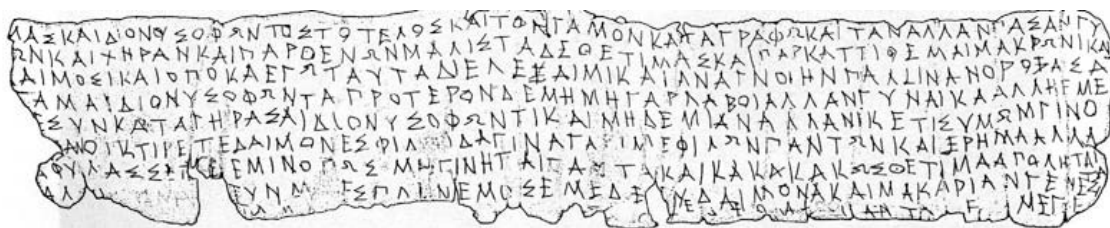 ΑΣΚΑΙΔΙΟΝΥΣΟΦΩΝΤΟΣΤΟΤΕΛΟΣΚΑΙΤΟΝΓΑΜΟΝΚΑΤΑΓΡΑΦΩΚΑΙΤΑΝΑΛΛΑΝΠΑΣΑΝΓΥ
ΩΝΚΑΙΧΗΡΑΝΚΑΙΠΑΡΘΕΝΩΝΜΑΛΙΣΤΑΔΕΘΕΤΙΜΑΣΚΑΙΠΑΡΚΑΤΤΙΘΕΜΑΙΜΑΚΡΩΝΙΚΑΙ
ΑΙΜΟΣΙΚΑΙΟΠΟΚΑΕΓΩΤΑΥΤΑΔΙΕΛΕΞΑΙΜΙΚΑΙΑΝΑΓΝΟΙΗΝΠΑΛΙΝΑΝΟΡΟΞΑΣΑ
ΓΑΜΑΙΔΙΟΝΥΣΟΦΩΝΤΑΠΡΟΤΕΡΟΝΔΕΜΗΜΗΓΑΡΛΑΒΟΙΑΛΛΑΝΓΥΝΑΙΚΑΑΛΛΗΕΜΕ
ΕΣΥΝΚΑΤΑΓΗΡΑΣΑΙΔΙΟΝΥΣΟΦΩΝΤΙΚΑΙΜΗΔΕΜΙΑΝΑΛΛΑΝΙΚΕΤΙΣΥΜΩΜΓΙΝΟ
ΑΝΟΙΚΤΙΡΕΤΕΔΑΙΜΟΝΕΣΦΙΛ ΔΑΓΙΝΑΓΑΡΙΜΕΦΙΛΩΝΠΑΝΤΩΝΚΑΙΕΡΗΜΑΑΛΛΑ
ΑΦΥΛΑΣΣΕΤΕΕΜΙΝΟΠΩΣΜΗΓΙΝΗΤΑΙΤΑΥΤΑΚΑΙΚΑΚΑΚΑΚΩΣΘΕΤΙΜΑΑΠΟΛΗΤΑΙ
ΑΛ ΥΝΜ ΕΣΠΛΙΝΕΜΟΣΕΜΕΔΕ ΥΔΑΙΜΟΝΑΚΑΙΜΑΚΑΡΙΑΝΓΕΝΕΣ
ΜΕΓΕ